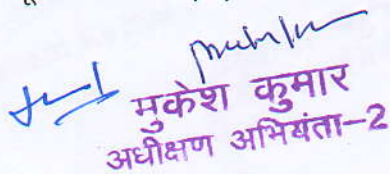 मुकेश कुमार
अधीक्षण अभियंता-2